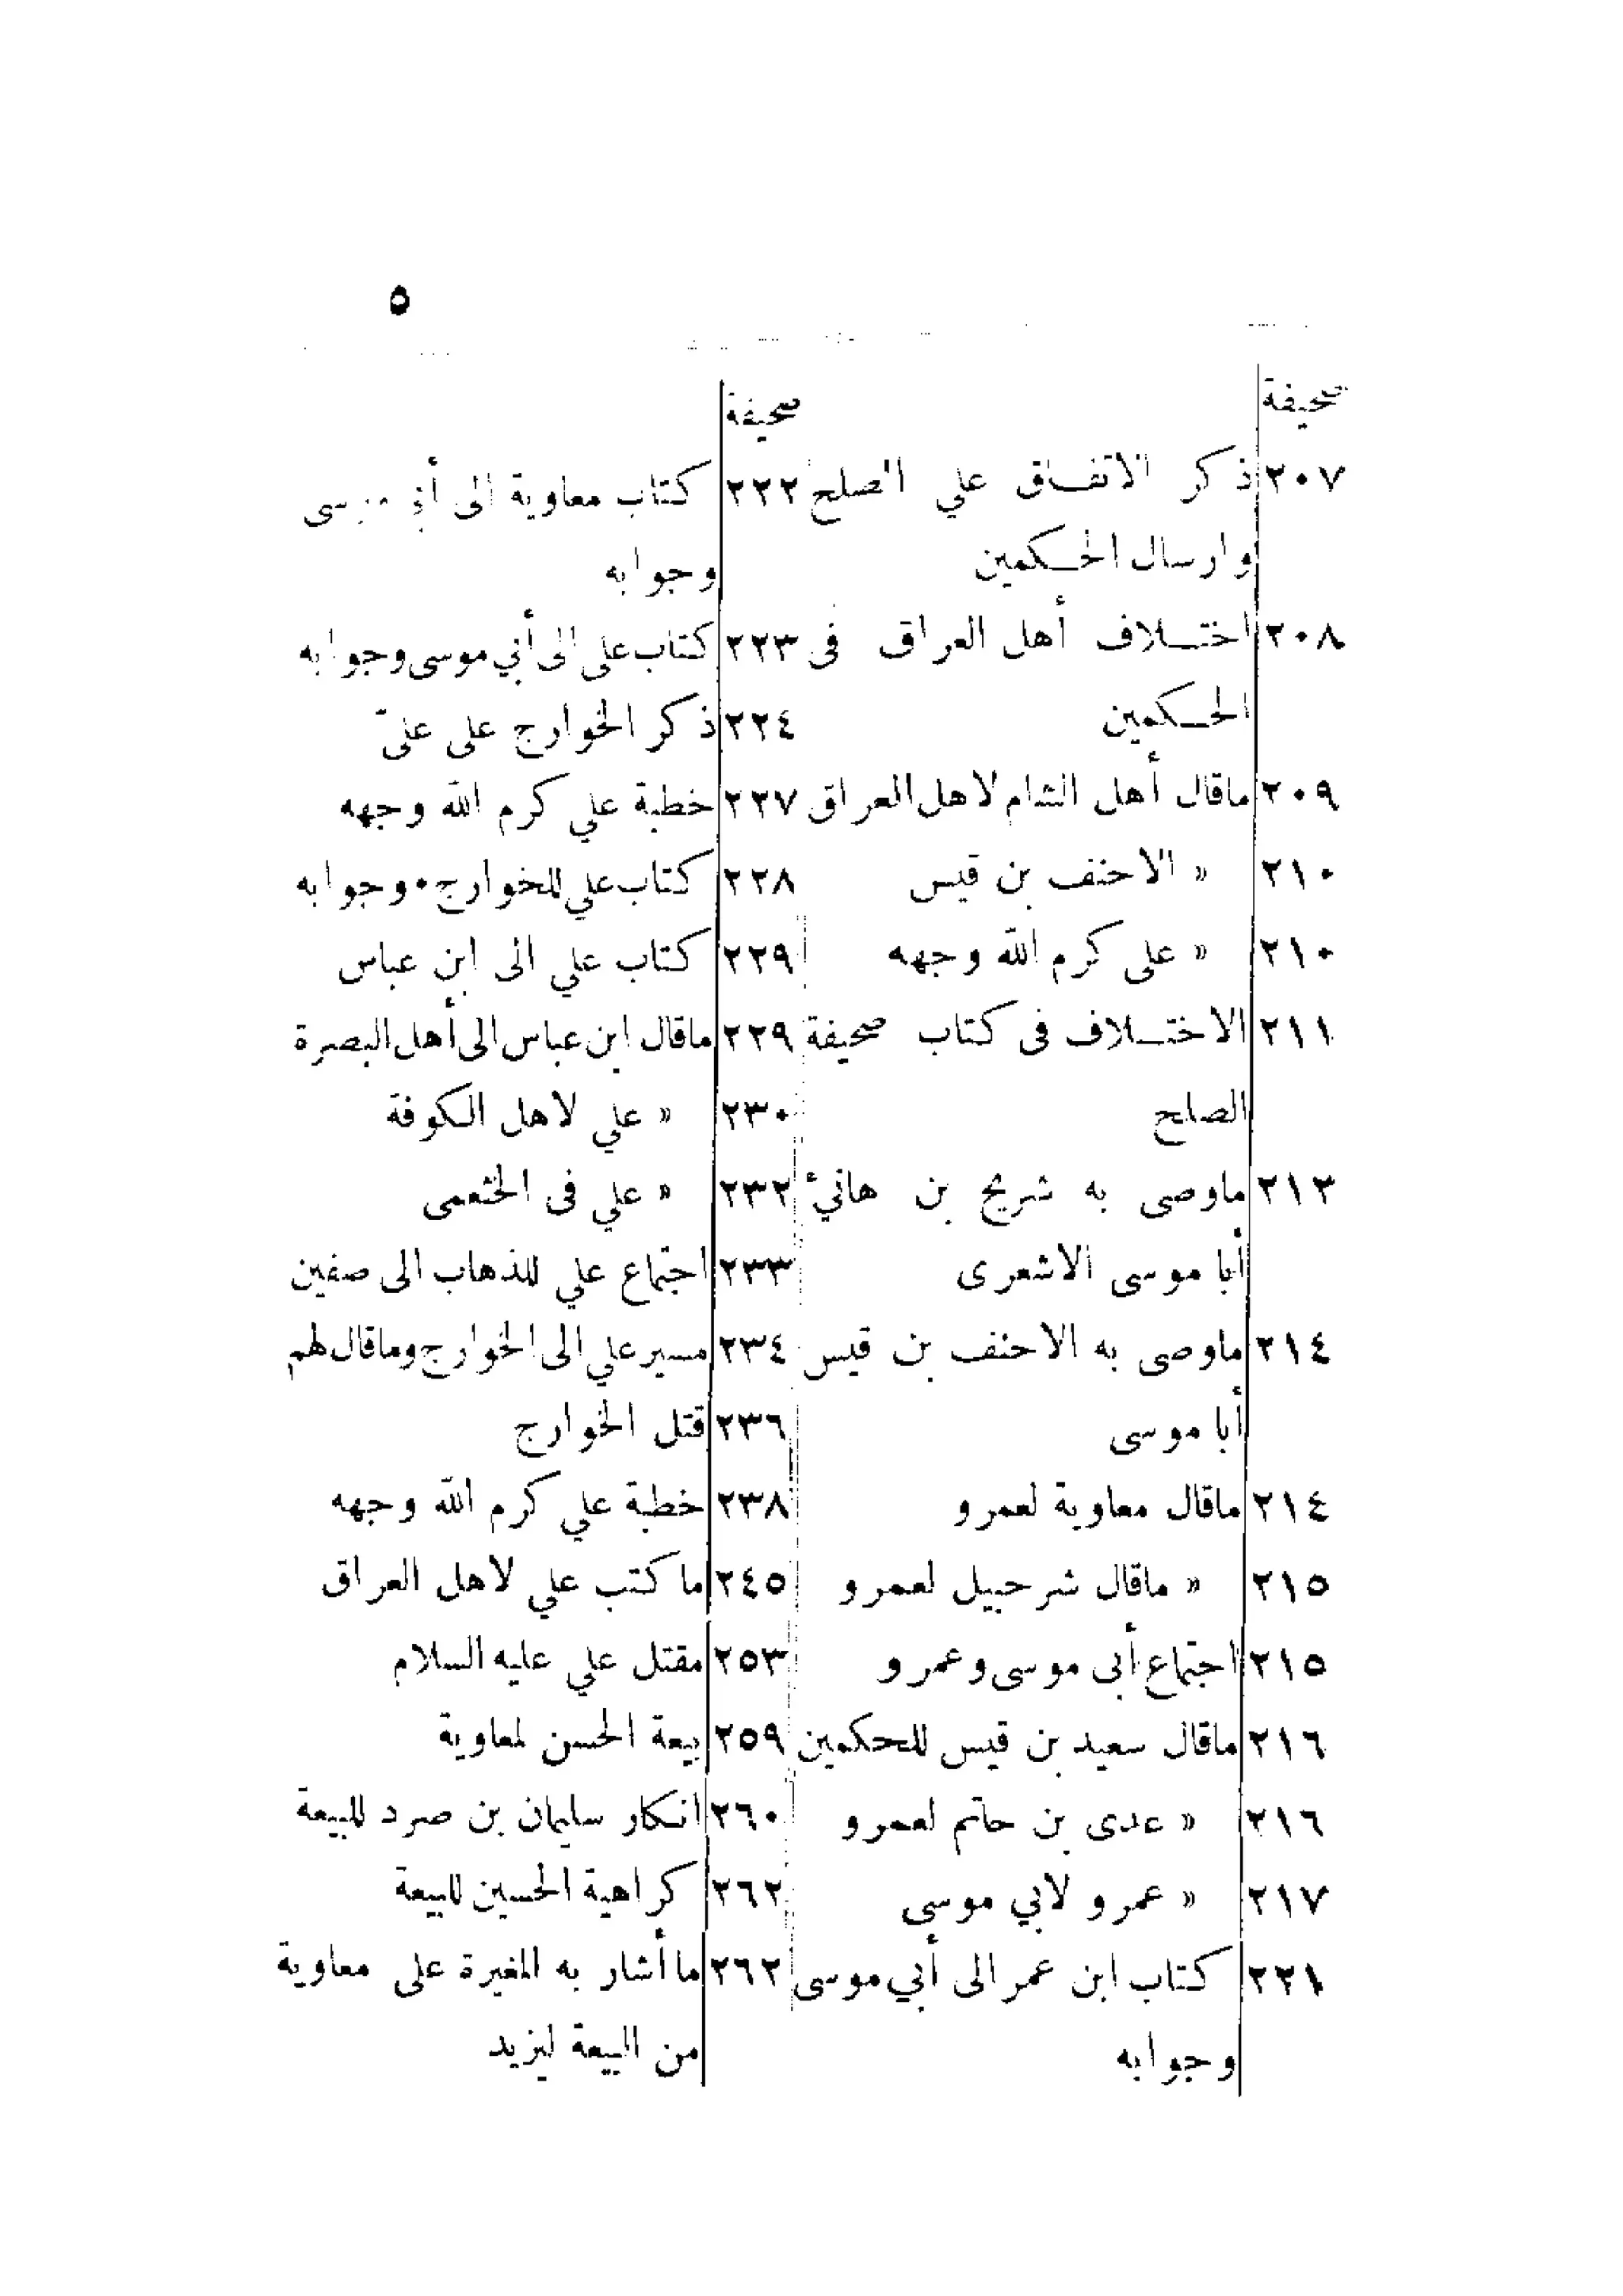 ٥
صحيفة
٢٠٧ ذكر الاتفاق علي الصلح
وارسال الحكمين
٢٠٨ اختلاف أهل العراق في
الحكمين
٢٠٩ ماقال أهل الشام لاهل العراق
٢١٠ » الاحنف بن قيس
٢١٠ » على كرم الله وجهه
٢١١ الاختلاف فى كتاب صحيفة
الصلح
٢١٣ ماوصى به شريح بن هانيء
أبا موسى الاشعرى
٢١٤ ماوصى به الاحنف بن قيس
أبا موسى
٢١٤ ماقال معاوية لعمرو
٢١٥ » ماقال شرحبيل لعمرو
٢١٥ اجتماع أبى موسى وعمرو
٢١٦ ماقال سعيد بن قيس للحكمين
٢١٦ » عدى بن حاتم لعمرو
٢١٧ » عمرو لابي موسى
٢٢١ كتاب ابن عمر الى أبي موسى
وجوابه
صحيفة
٢٢٢ كتاب معاوية الى أبي موسى
وجوابه
٢٢٣ كتاب على الى أبي موسى وجوابه
٢٢٤ ذكر الخوارج على علىّ
٢٢٧ خطبة علي كرم الله وجهه
٢٢٨ كتاب علي للخوارج٠وجوابه
٢٢٩ كتاب علي الى ابن عباس
٢٢٩ ماقال ابن عباس الى أهل البصرة
٢٣٠ » علي لاهل الكوفة
٢٣٢ » علي فى الخثعمى
٢٣٣ اجتماع علي للذهاب الى صفين
٢٣٤ مسير علي الى الخوارج وماقال لهم
٢٣٦ قتل الخوارج
٢٣٨ خطبة علي كرم الله وجهه
٢٤٥ ما كتب علي لاهل العراق
٢٥٣ مقتل علي عليه السلام
٢٥٩ بيعة الحسن لمعاوية
٢٦٠ انكار سليمان بن صرد للبيعة
٢٦٢ كراهية الحسين للبيعة
٢٦٢ ما أشار به المغيرة على معاوية
من البيعة ليزيد